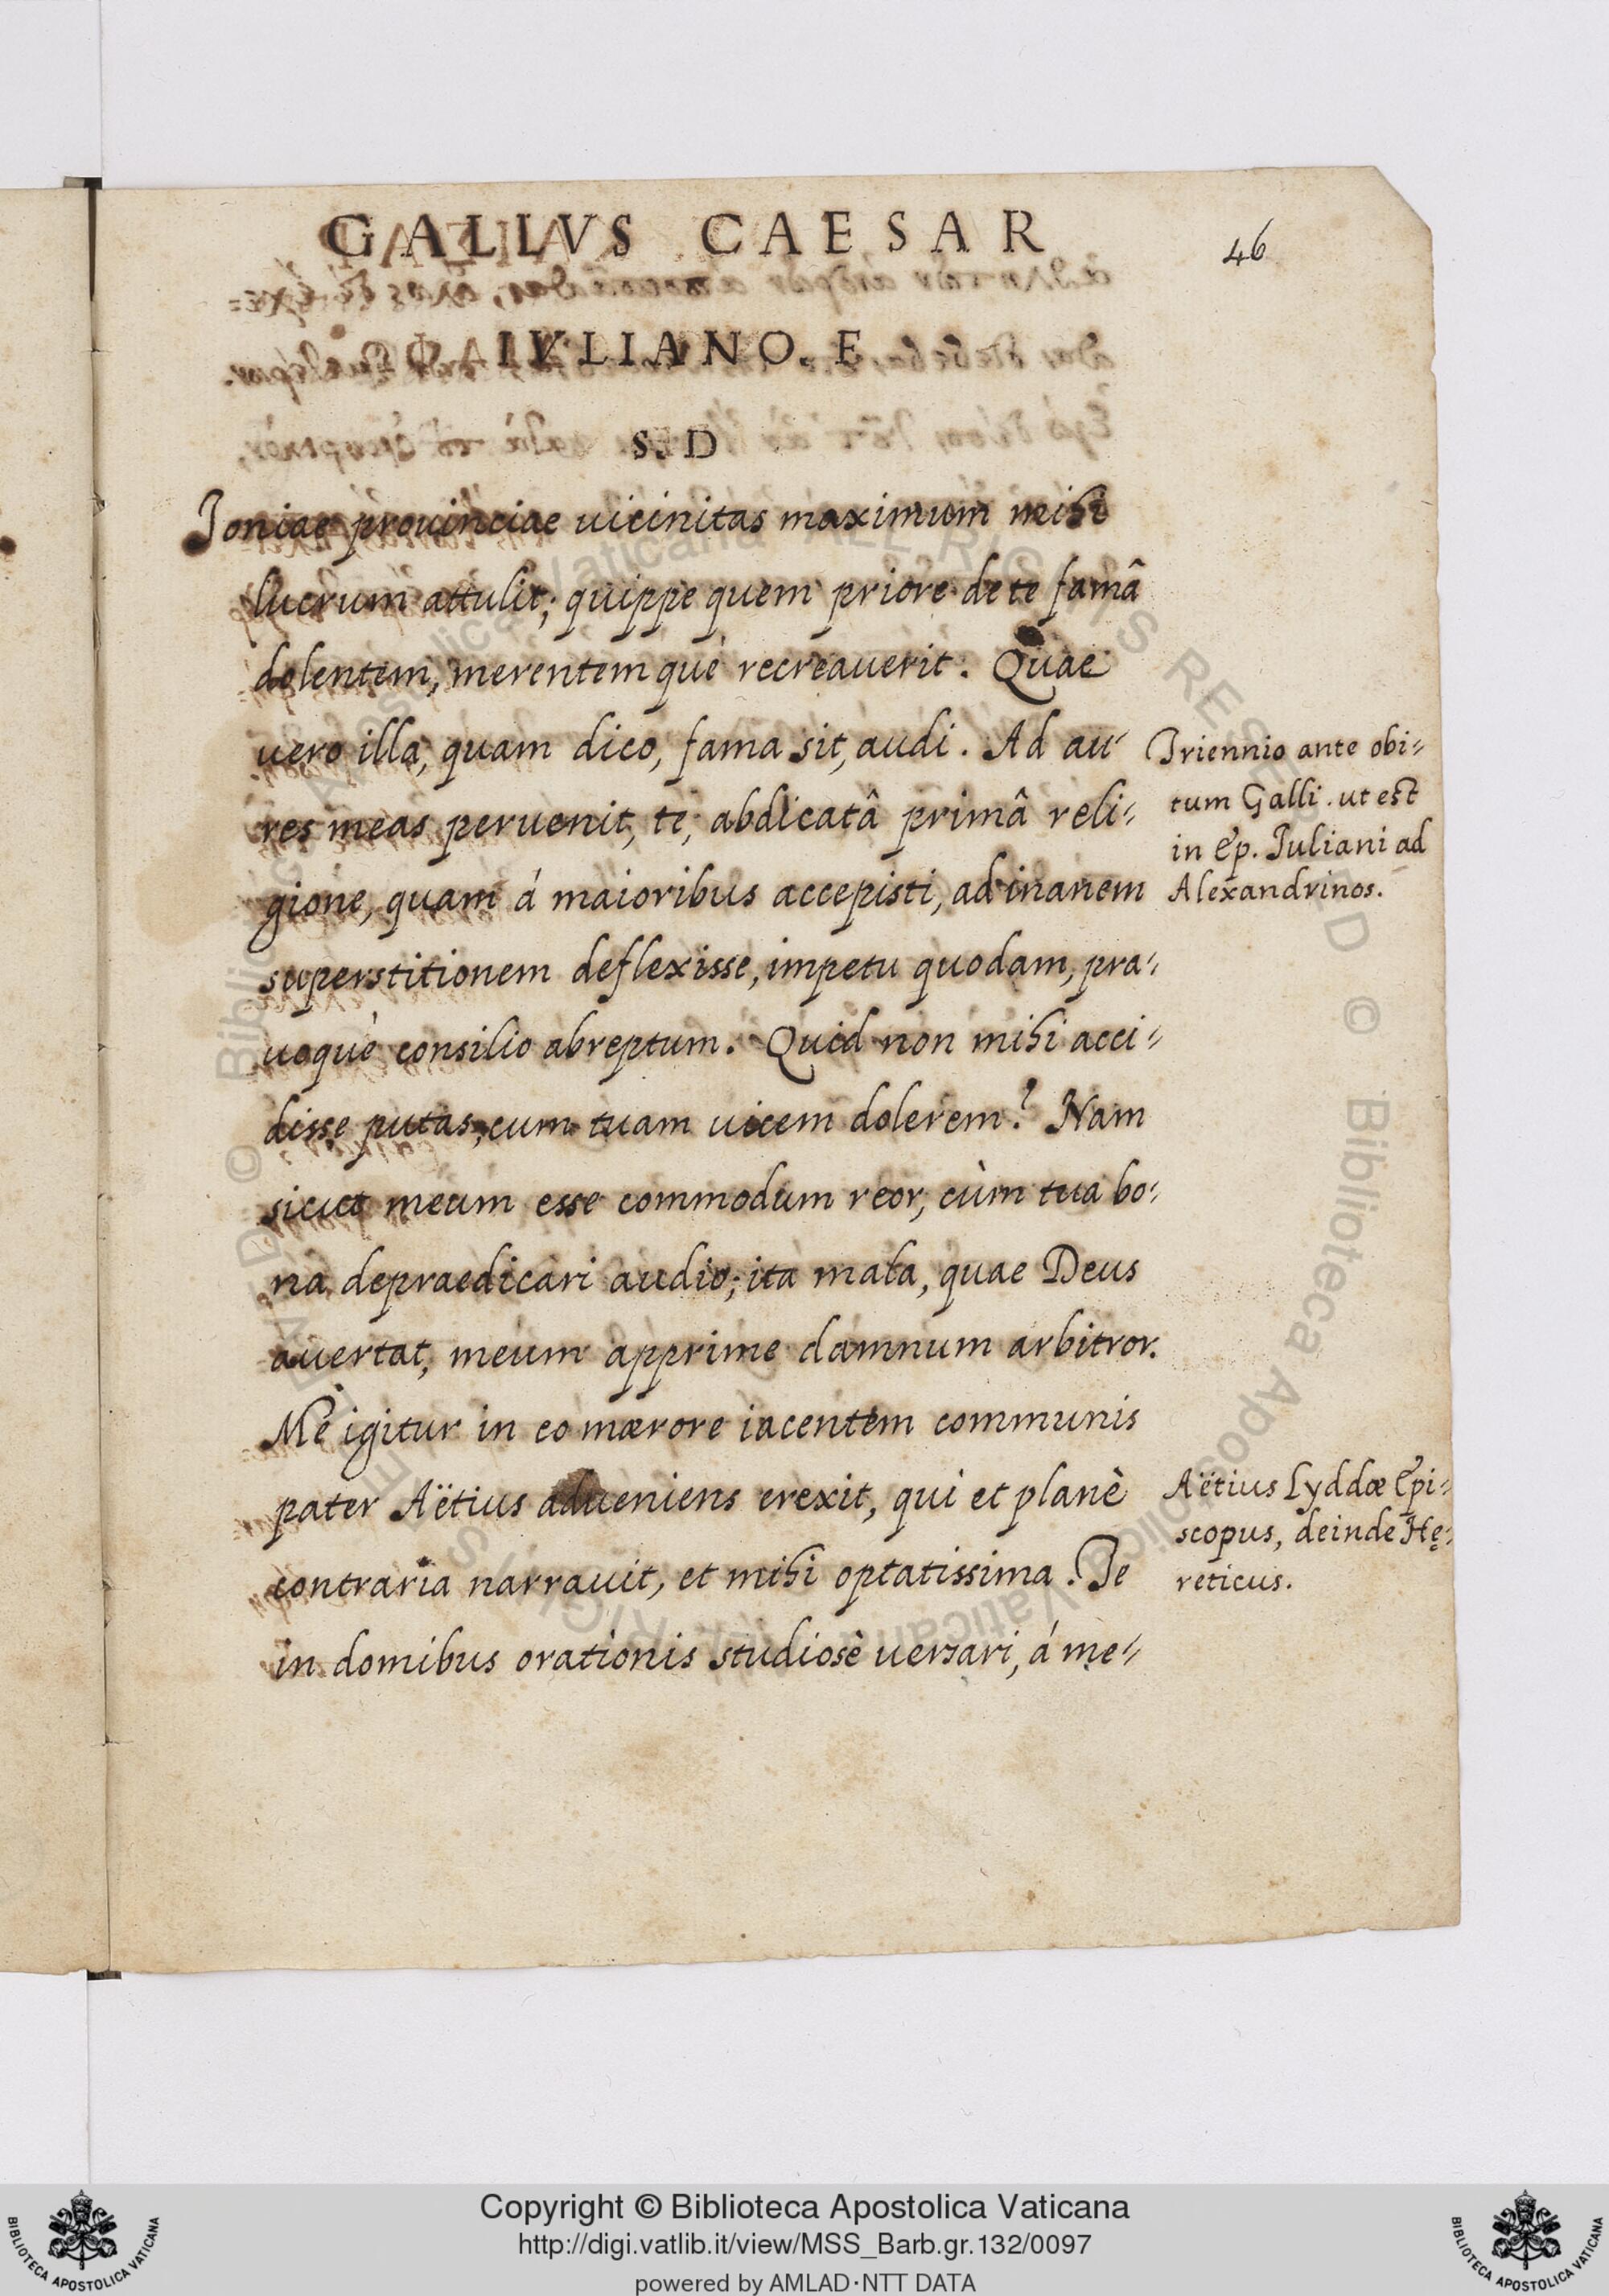 GALLVS CAESAR
46
IVLIANO. F
S. D
Ioniae prouinciae uicinitas maximum mihi
lucrum attulit; quippe quem priore de te famâ
dolentem, merentem què recreauerit. Quae
uero illa, quam dico, fama sit, audi. Ad au-
res meas peruenit, te, abdicatâ primâ reli-
gione, quam á maioribus accepisti, ad inanem
superstitionem deflexisse, impetu quodam, pra-
uoquè consilio abreptum. Quid non mihi acci-
disse putas, cum tuam uicem dolerem? Nam
sicut meum esse commodum reor, cùm tua bo-
na depraedicari audio; ita mala, quae Deus
auertat, meum apprime damnum arbitror.
Me igitur in eo mærore iacentem communis
pater Aëtius adueniens erexit, qui et planè
contraria narrauit, et mihi optatissima. Te
in domibus orationis studiosè uersari, á me-
Triennio ante obi-
tum Galli. ut est
in Ep. Iuliani ad
Alexandrinos.
Aëtius Lyddæ Epi-
scopus, deinde Hę-
reticus.
Copyright © Biblioteca Apostolica Vaticana
http://digi.vatlib.it/view/MSS_Barb.gr.132/0097
powered by AMLAD·NTT DATA
BIBLIOTECA APOSTOLICA VATICANA
BIBLIOTECA APOSTOLICA VATICANA